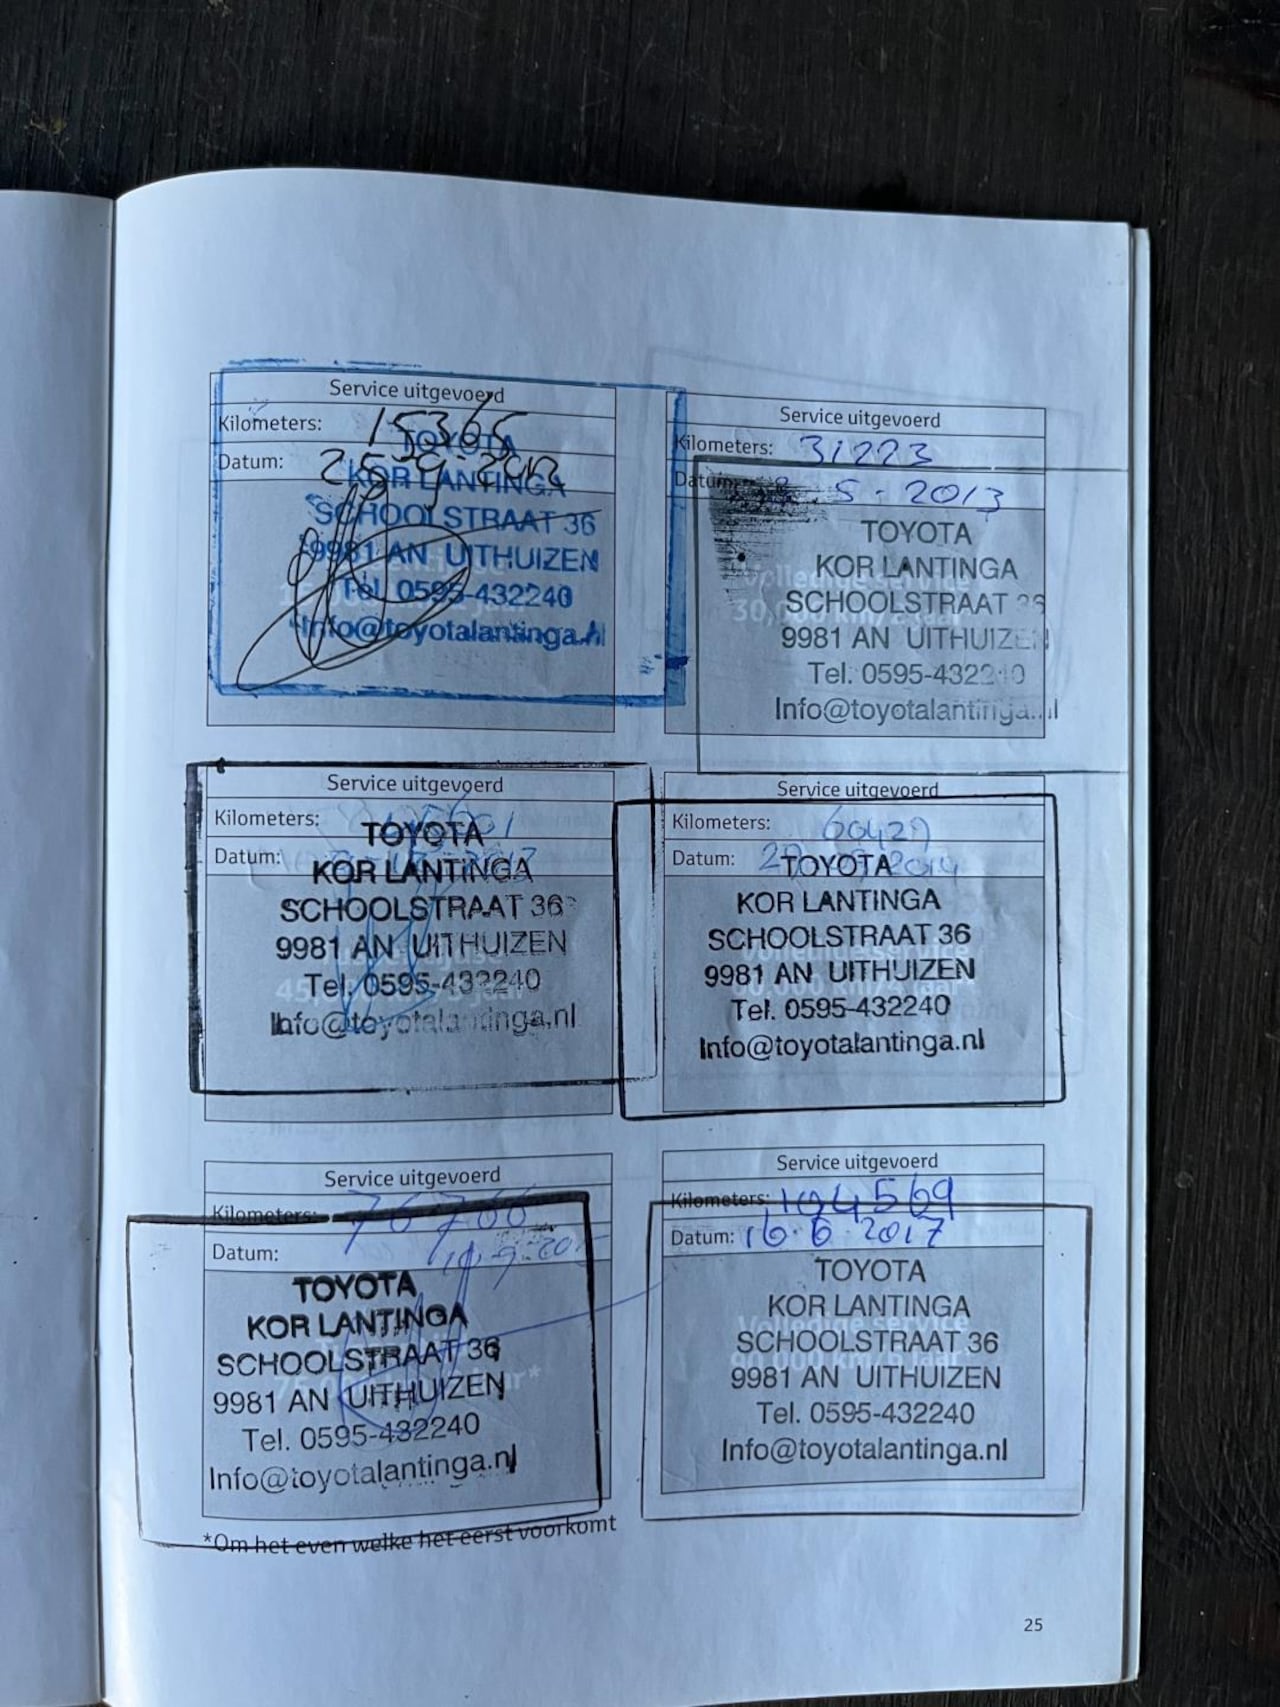 Service uitgevoerd
Kilometers: 15365
Datum: 2012
TOYOTA
KOR LANTINGA
SCHOOLSTRAAT 36
9981 AN UITHUIZEN
Tel. 0595-432240
Info@toyotalantinga.nl
Service uitgevoerd
Kilometers: 31223
Datum: 5-2013
Volledige service
30,000 km/2 jaar
TOYOTA
KOR LANTINGA
SCHOOLSTRAAT 36
9981 AN UITHUIZEN
Tel. 0595-432240
Info@toyotalantinga.nl
Service uitgevoerd
Kilometers:
Datum:
TOYOTA
KOR LANTINGA
SCHOOLSTRAAT 36
9981 AN UITHUIZEN
Tel. 0595-432240
Info@toyotalantinga.nl
Service uitgevoerd
Kilometers: 60429
Datum: 2014
TOYOTA
KOR LANTINGA
SCHOOLSTRAAT 36
9981 AN UITHUIZEN
Tel. 0595-432240
Info@toyotalantinga.nl
Service uitgevoerd
Kilometers: 76766
Datum:
TOYOTA
KOR LANTINGA
SCHOOLSTRAAT 36
9981 AN UITHUIZEN
Tel. 0595-432240
Info@toyotalantinga.nl
Service uitgevoerd
Kilometers: 104569
Datum: 16-6-2017
Volledige service
90,000 km/6 jaar*
TOYOTA
KOR LANTINGA
SCHOOLSTRAAT 36
9981 AN UITHUIZEN
Tel. 0595-432240
Info@toyotalantinga.nl
*Om het even welke het eerst voorkomt
25